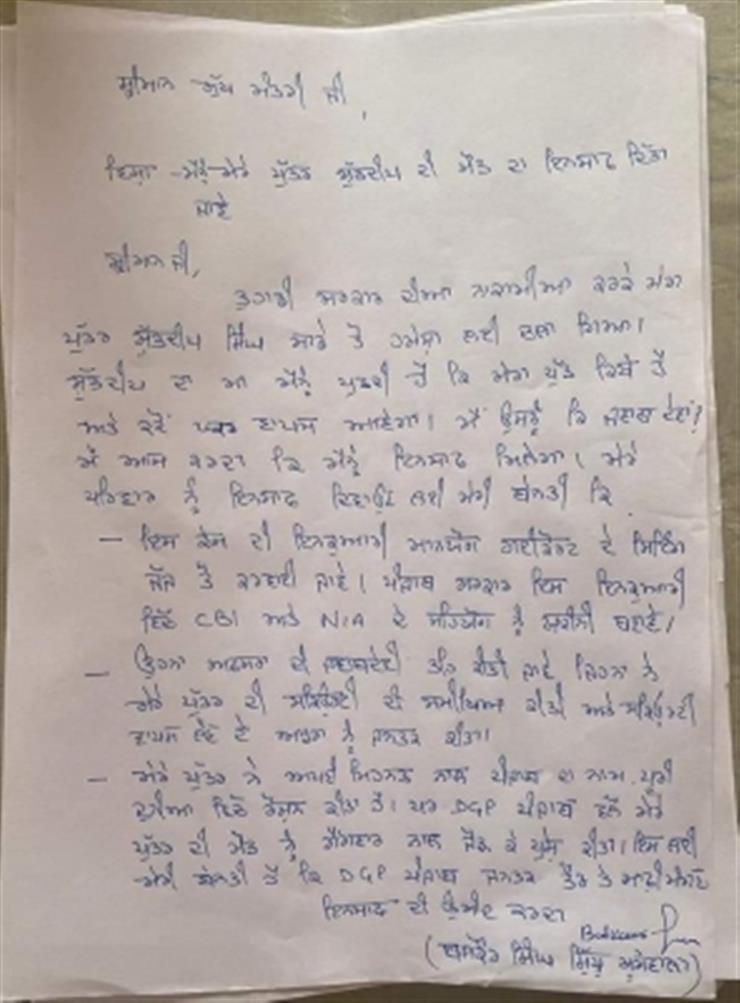 ਸ਼੍ਰੀਮਾਨ ਮੁੱਖ ਮੰਤਰੀ ਜੀ,
ਵਿਸ਼ਾ - ਮੈਨੂੰ ਮੇਰੇ ਪੁੱਤਰ ਸ਼ੁੱਭਦੀਪ ਦੀ ਮੌਤ ਦਾ ਇਨਸਾਫ ਦਿੱਤਾ
ਜਾਵੇ
ਸ਼੍ਰੀਮਾਨ ਜੀ,
ਤੁਹਾਡੀ ਸਰਕਾਰ ਦੀਆਂ ਨਾਕਾਮੀਆਂ ਕਰਕੇ ਮੇਰਾ
ਪੁੱਤਰ ਸ਼ੁੱਭਦੀਪ ਸਿੰਘ ਸਾਡੇ ਤੋਂ ਹਮੇਸ਼ਾ ਲਈ ਚਲਾ ਗਿਆ।
ਸ਼ੁੱਭਦੀਪ ਦਾ ਮਾਂ ਮੈਨੂੰ ਪੁਛਦੀ ਹੈ ਕਿ ਮੇਰਾ ਪੁੱਤ ਕਿਥੇ ਹੈ
ਅਤੇ ਕਦੋਂ ਘਰ ਵਾਪਸ ਆਵੇਗਾ। ਮੈਂ ਉਸਨੂੰ ਕਿ ਜਵਾਬ ਦੇਵਾਂ?
ਮੈਂ ਆਸ ਕਰਦਾ ਕਿ ਮੈਨੂੰ ਇਨਸਾਫ ਮਿਲੇਗਾ। ਮੇਰੇ
ਪਰਿਵਾਰ ਨੂੰ ਇਨਸਾਫ ਦਿਵਾਉਣ ਲਈ ਮੇਰੀ ਬੇਨਤੀ ਕਿ
- ਇਸ ਕੇਸ ਦੀ ਇਨਕੁਆਰੀ ਮਾਨਯੋਗ ਹਾਈਕੋਰਟ ਦੇ ਸਿਟਿੰਗ
ਜੱਜ ਤੋਂ ਕਰਵਾਈ ਜਾਵੇ। ਪੰਜਾਬ ਸਰਕਾਰ ਇਸ ਇਨਕੁਆਰੀ
ਵਿੱਚ CBI ਅਤੇ NIA ਦੇ ਸਹਿਯੋਗ ਨੂੰ ਯਕੀਨੀ ਬਣਾਏ।
- ਉਹਨਾਂ ਆਫਸਰਾਂ ਦੀ ਜਵਾਬਦੇਹੀ ਤਹਿ ਕੀਤੀ ਜਾਵੇ ਜਿਹਨਾਂ ਨੇ
ਮੇਰੇ ਪੁੱਤਰ ਦੀ ਸਕਿਉਰਟੀ ਦੀ ਸਮੀਖਿਆ ਕੀਤੀ ਅਤੇ ਸਕਿਉਰਟੀ
ਵਾਪਸ ਲੈਣ ਦੇ ਆਡਰਾਂ ਨੂੰ ਜਨਤਕ ਕੀਤਾ।
- ਮੇਰੇ ਪੁੱਤਰ ਨੇ ਆਪਣੀ ਮਿਹਨਤ ਨਾਲ ਪੰਜਾਬ ਦਾ ਨਾਮ ਪੂਰੀ
ਦੁਨੀਆ ਵਿੱਚ ਰੌਸ਼ਨ ਕੀਤਾ ਹੈ। ਪਰ DGP ਪੰਜਾਬ ਵਲੋਂ ਮੇਰੇ
ਪੁੱਤਰ ਦੀ ਮੌਤ ਨੂੰ ਗੈਂਗਵਾਰ ਨਾਲ ਜੋੜ ਕੇ ਪੇਸ਼ ਕੀਤਾ। ਇਸ ਲਈ
ਮੇਰੀ ਬੇਨਤੀ ਹੈ ਕਿ DGP ਪੰਜਾਬ ਜਨਤਕ ਤੌਰ ਤੇ ਮਾਫੀ ਮੰਗਣ
ਇਨਸਾਫ ਦੀ ਉਮੀਦ ਕਰਦਾ
(ਬਲਕੌਰ ਸਿੰਘ ਸਿੱਧੂ ਮੂਸੇਵਾਲਾ)